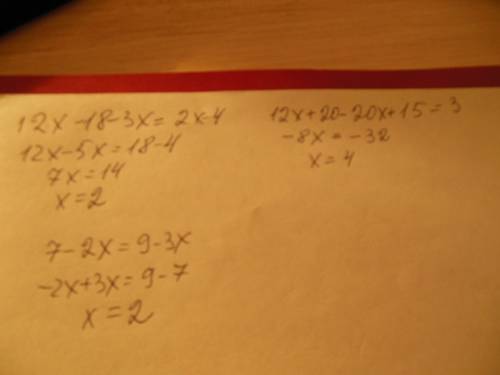 12x-18-3x=2x-4
12x-5x=18-4
7x=14
x=2
7-2x=9-3x
-2x+3x=9-7
x=2
12x+20-20x+15=3
-8x=-32
x=4